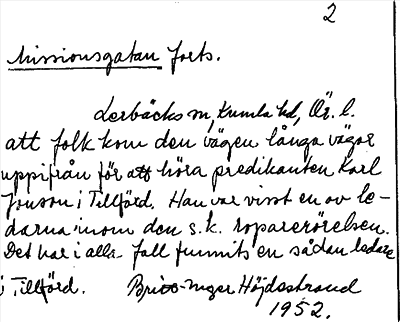 2
Missionsgatan forts.
Lerbäcks sn, Kumla hd, Ör. l.
att folk kom den vägen långa vägar
uppifrån för att höra predikanten Karl
Jonson i Tillförd. Han var visst en av le-
darna inom den s.k. roparerörelsen.
Det har i alla fall funnits en sådan ledare
i Tillförd. Britt-Inger Höjdestrand
1952.